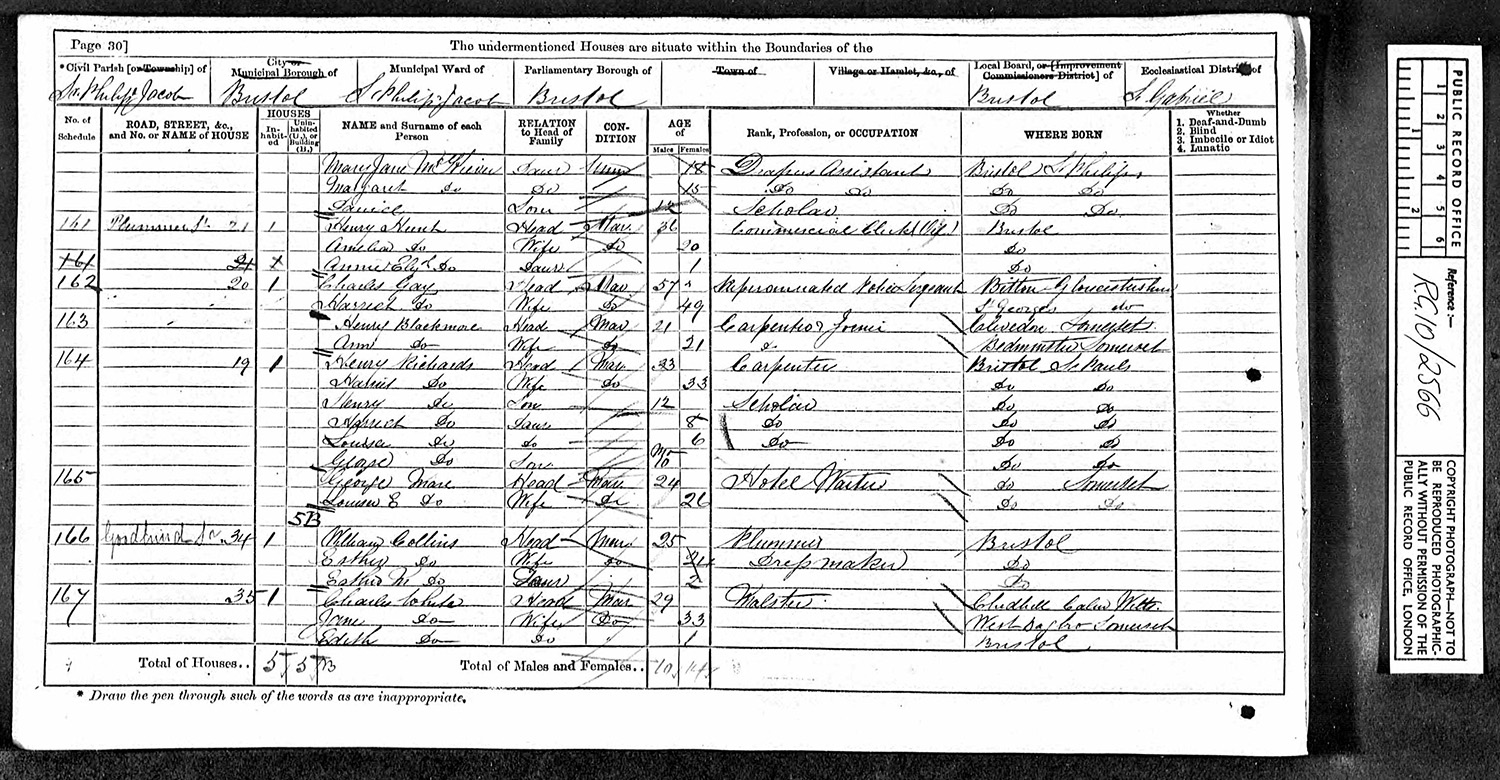 Page 30]
The undermentioned Houses are situate within the Boundaries of the
*Civil Parish [or Township] of
City or Municipal Borough of
Municipal Ward of
Parliamentary Borough of
Town of
Village or Hamlet, &c., of
Local Board, or [Improvement Commissioners District] of
Ecclesiastical District of
Philip & Jacob Bristol St Philip & Jacob Bristol Bristol St Gabriel
No. of Schedule
ROAD, STREET, &c., and No. or NAME of HOUSE
HOUSES
Inhabited
Uninhabited (U.), or Building (B.)
NAME and Surname of each Person
RELATION to Head of Family
CONDITION
AGE of
Males Females
Rank, Profession, or OCCUPATION
WHERE BORN
Whether
1. Deaf-and-Dumb
2. Blind
3. Imbecile or Idiot
4. Lunatic
Mary Jane Daur Unm 18 Drapers Assistant Bristol St Philips
Margaret Do Do 15 Do Do Do Do
Daniel Son Scholar Do Do
161 Plummer St 21 1 Henry Hunt Head Mar 36 Commercial Clerk Bristol
Amelia Do Wife Do 20 Do
161 21 1 Annie Elizth Do Daur 1 Do
162 20 1 Charles Gay Head Mar 57 Superannuated Police Sergeant Bitton Gloucestershire
Harriet Do Wife Do 49 St Georges do
163 Henry Blackmore Head Mar 21 Carpenter & Joiner Clevedon Somerset
Ann Do Wife Do 21 Bedminster Somerset
164 19 1 Henry Richards Head Mar 33 Carpenter Bristol St Pauls
Harriet Do Wife Do 33 Do Do
Henry Do Son 12 Scholar Do Do
Harriet Do Daur 8 Do Do Do
Louisa Do Do 6 Do Do Do
George Do Son Mo 10 Do Do
165 George Mare Head Mar 24 Hotel Waiter do Somerset
Louisa E Do Wife Do 26 Do Do
5B
166 Goodhind St 34 1 William Collins Head Mar 25 Plummer Bristol
Esther Do Wife Do 24 Dressmaker Do
Esther M Do Daur 2 Do
167 35 1 Charles White Head Mar 29 Malster Calne Wilts
Jane Do Wife Do 33 West Somerset
Edith Do Do 1 Bristol
Total of Houses.. 5 5B Total of Males and Females.. 10 14
* Draw the pen through such of the words as are inappropriate.
PUBLIC RECORD OFFICE
1 2 3 4 5 6
1 2
Reference:-
RG 10/2566
COPYRIGHT PHOTOGRAPH—NOT TO
BE REPRODUCED PHOTOGRAPHIC-
ALLY WITHOUT PERMISSION OF THE
PUBLIC RECORD OFFICE, LONDON